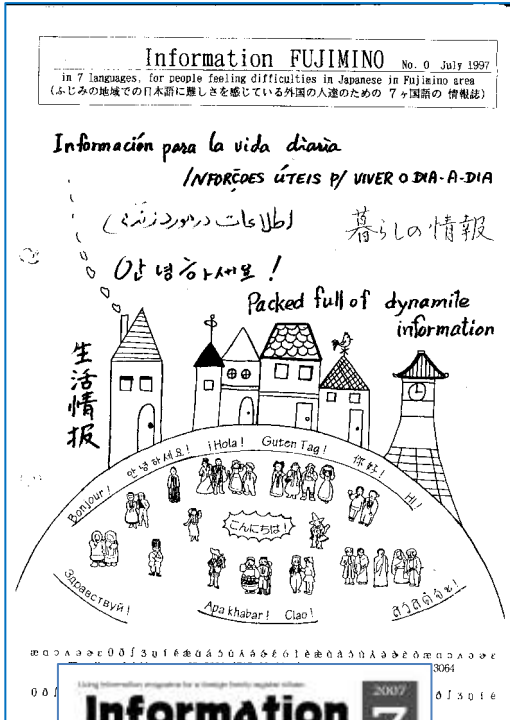 Information FUJIMINO No. 0 July 1997
in 7 languages, for people feeling difficulties in Japanese in Fujimino area
(ふじみの地域での日本語に難しさを感じている外国の人達のための 7ヶ国語の 情報誌)
Información para la vida diaria
INFORÇÕES ÚTEIS P/ VIVER O DIA-A-DIA
暮らしの情報
안녕하세요!
Packed full of dynamite
information
生活情报
Bonjour! 안녕하세요! ¡Hola! Guten Tag! 你好! Hi!
こんにちは!
Здравствуй! Apa khabar! Ciao!
3064
Living information magazine for a foreign family register citizen
Information 2007
7